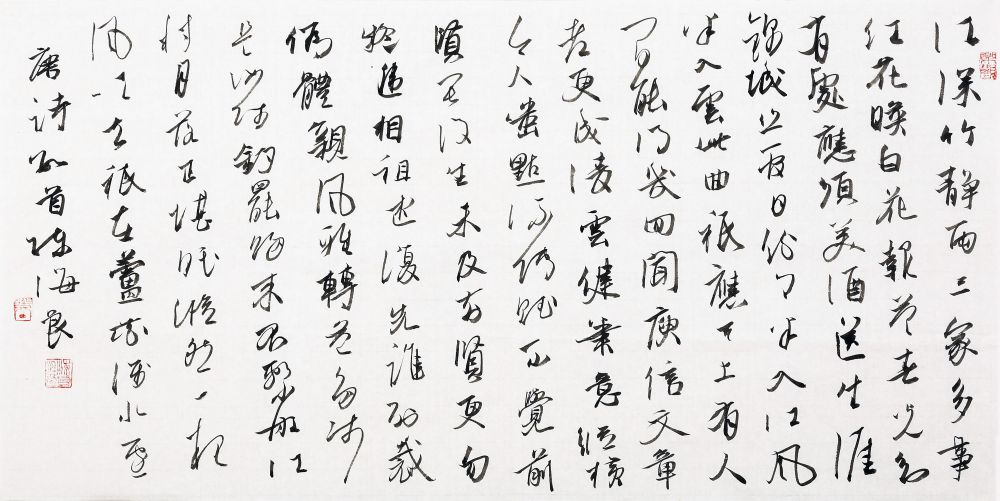 江深竹靜兩三家多事
紅花映白花報答春光知
有處應須美酒送生涯
錦城絲管日紛紛半入江風
半入雲此曲祇應天上有人
間能得幾回聞庾信文章
老更成凌雲健筆意縱橫
今人嗤點流傳賦不覺前
賢畏後生未及前賢更勿
疑遞相祖述復先誰別裁
偽體親風雅轉益多師
是汝師釣罷歸來不繫船江
村月落正堪眠縱然一夜
風吹去祇在蘆花淺水邊
唐詩首陳海良